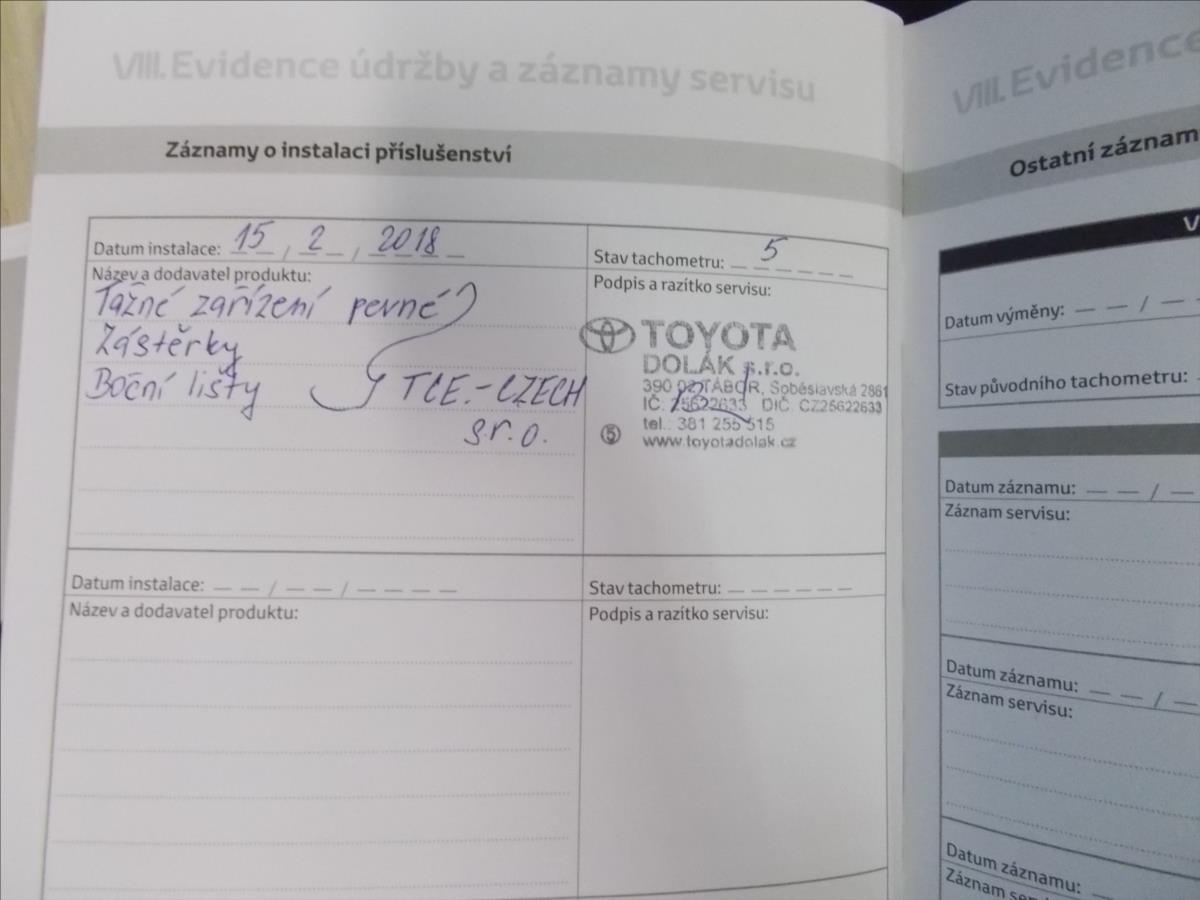 VIII. Evidence údržby a záznamy servisu
Záznamy o instalaci příslušenství
Datum instalace: 15 / 2 / 2018
Stav tachometru: 5
Název a dodavatel produktu:
Tažné zařízení pevné
Zástěrky
Boční lišty
TCE.-CZECH
s.r.o.
Podpis a razítko servisu:
TOYOTA
DOLÁK s.r.o.
390 02 TÁBOR, Soběslavská 2861
IČ: 25622633 DIČ: CZ25622633
tel.: 381 255 515
5 www.toyotadolak.cz
Datum instalace: _ _ / _ _ / _ _ _ _
Stav tachometru: _ _ _ _ _ _
Název a dodavatel produktu:
Podpis a razítko servisu:
VIII. Evidence
Ostatní záznam
V
Datum výměny: _ _ / _
Stav původního tachometru:
Datum záznamu: _ _ / _
Záznam servisu:
Datum záznamu: _ _ / _
Záznam servisu:
Datum záznamu:
Záznam